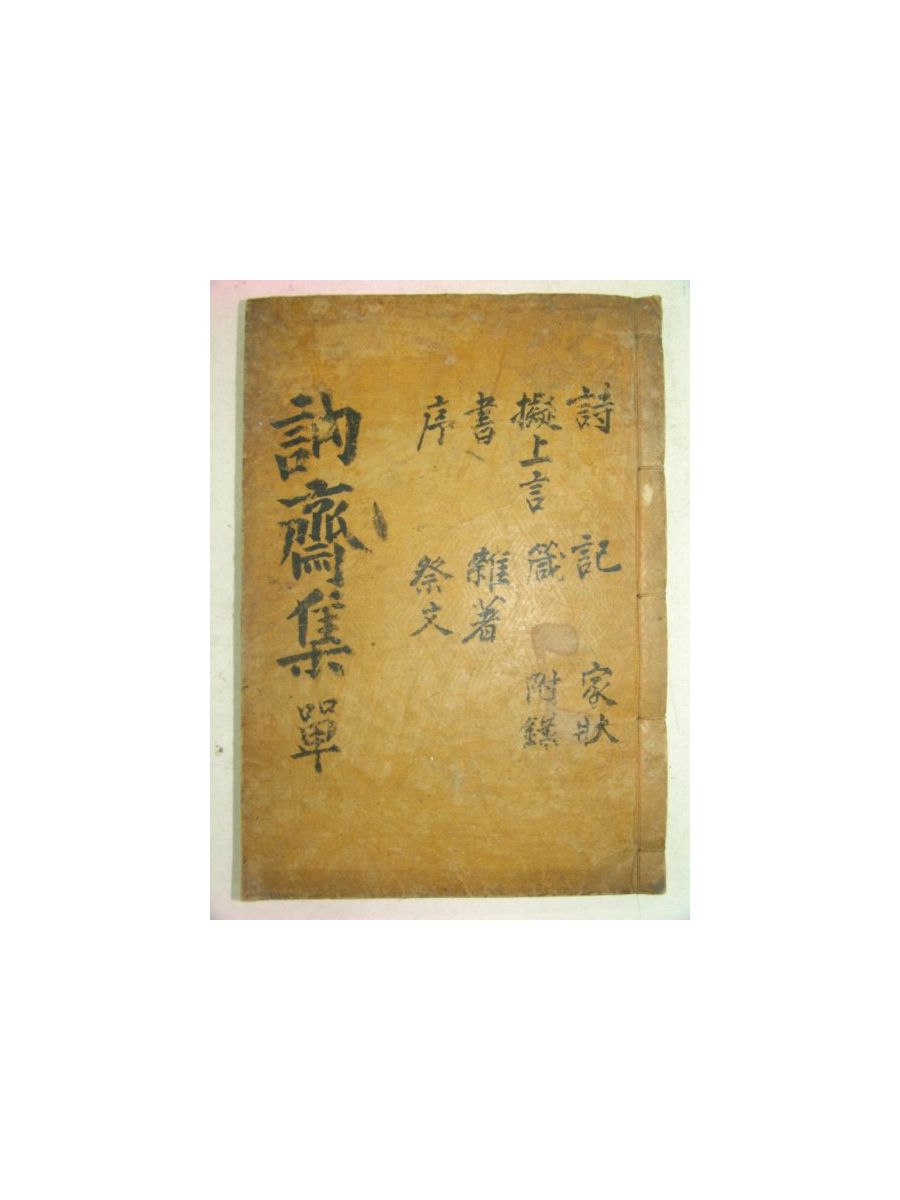 詩
擬上言
書
序
記
箴
雜著
祭文
家狀
附錄
訥齋集 單